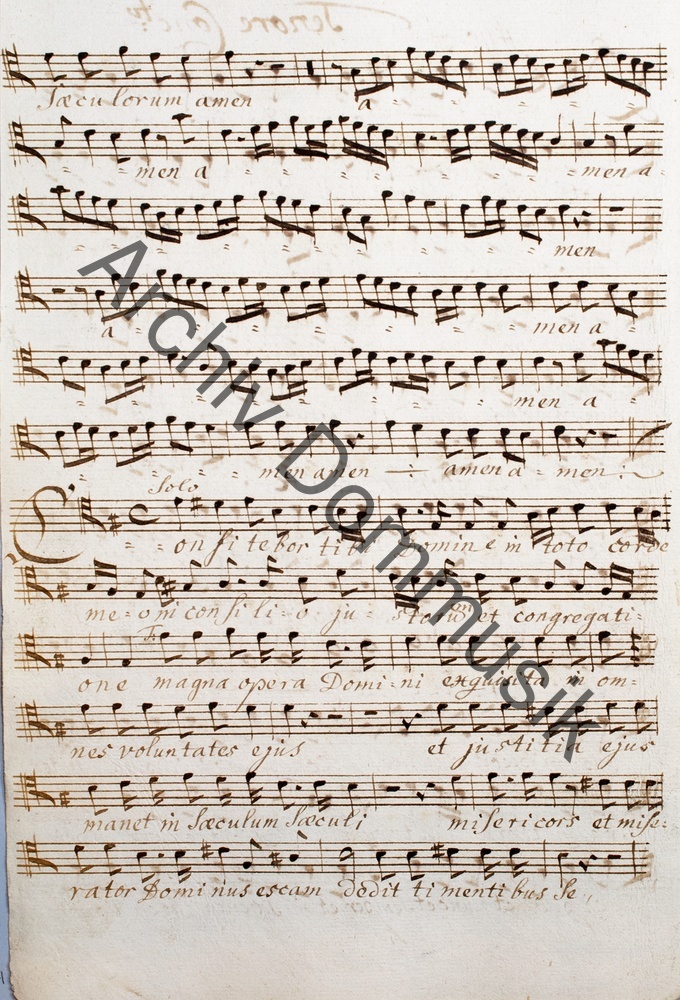 Sæculorum amen a - - - - - -
men a - - - - men a -
- - - - - - men
a - - - - - men a -
- - - - - - men a -
- - - - men amen ÷ amen a - men :
Solo
Confitebor tibi Domine in toto corde
me - o in consili - o - ju - storum et congregati -
Tutti
one magna opera Domi - ni exquisita in om -
nes voluntates ejus et justitia ejus
manet in sæculum sæculi misericors et mise -
rator Dominus escam dedit timentibus se,
Archiv Dommusik